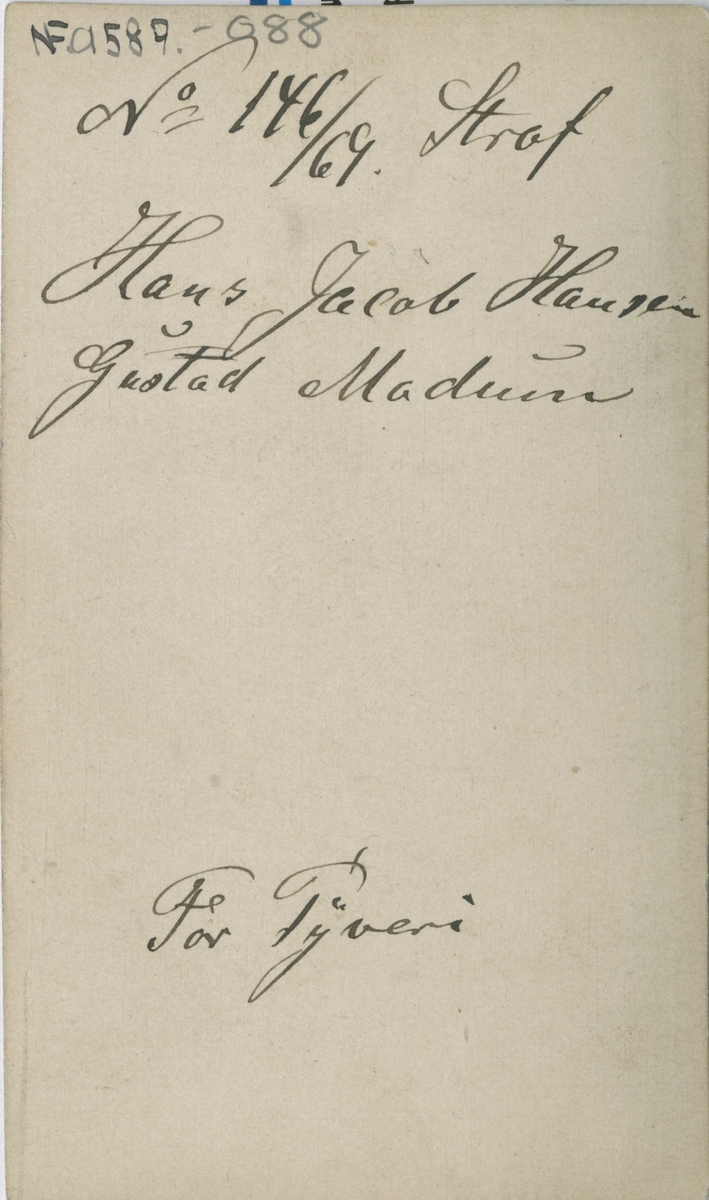 NF.a 589. - 088
No 146/69. Straf
Hans Jacob Hansen
Gustad Madum
För Tÿveri